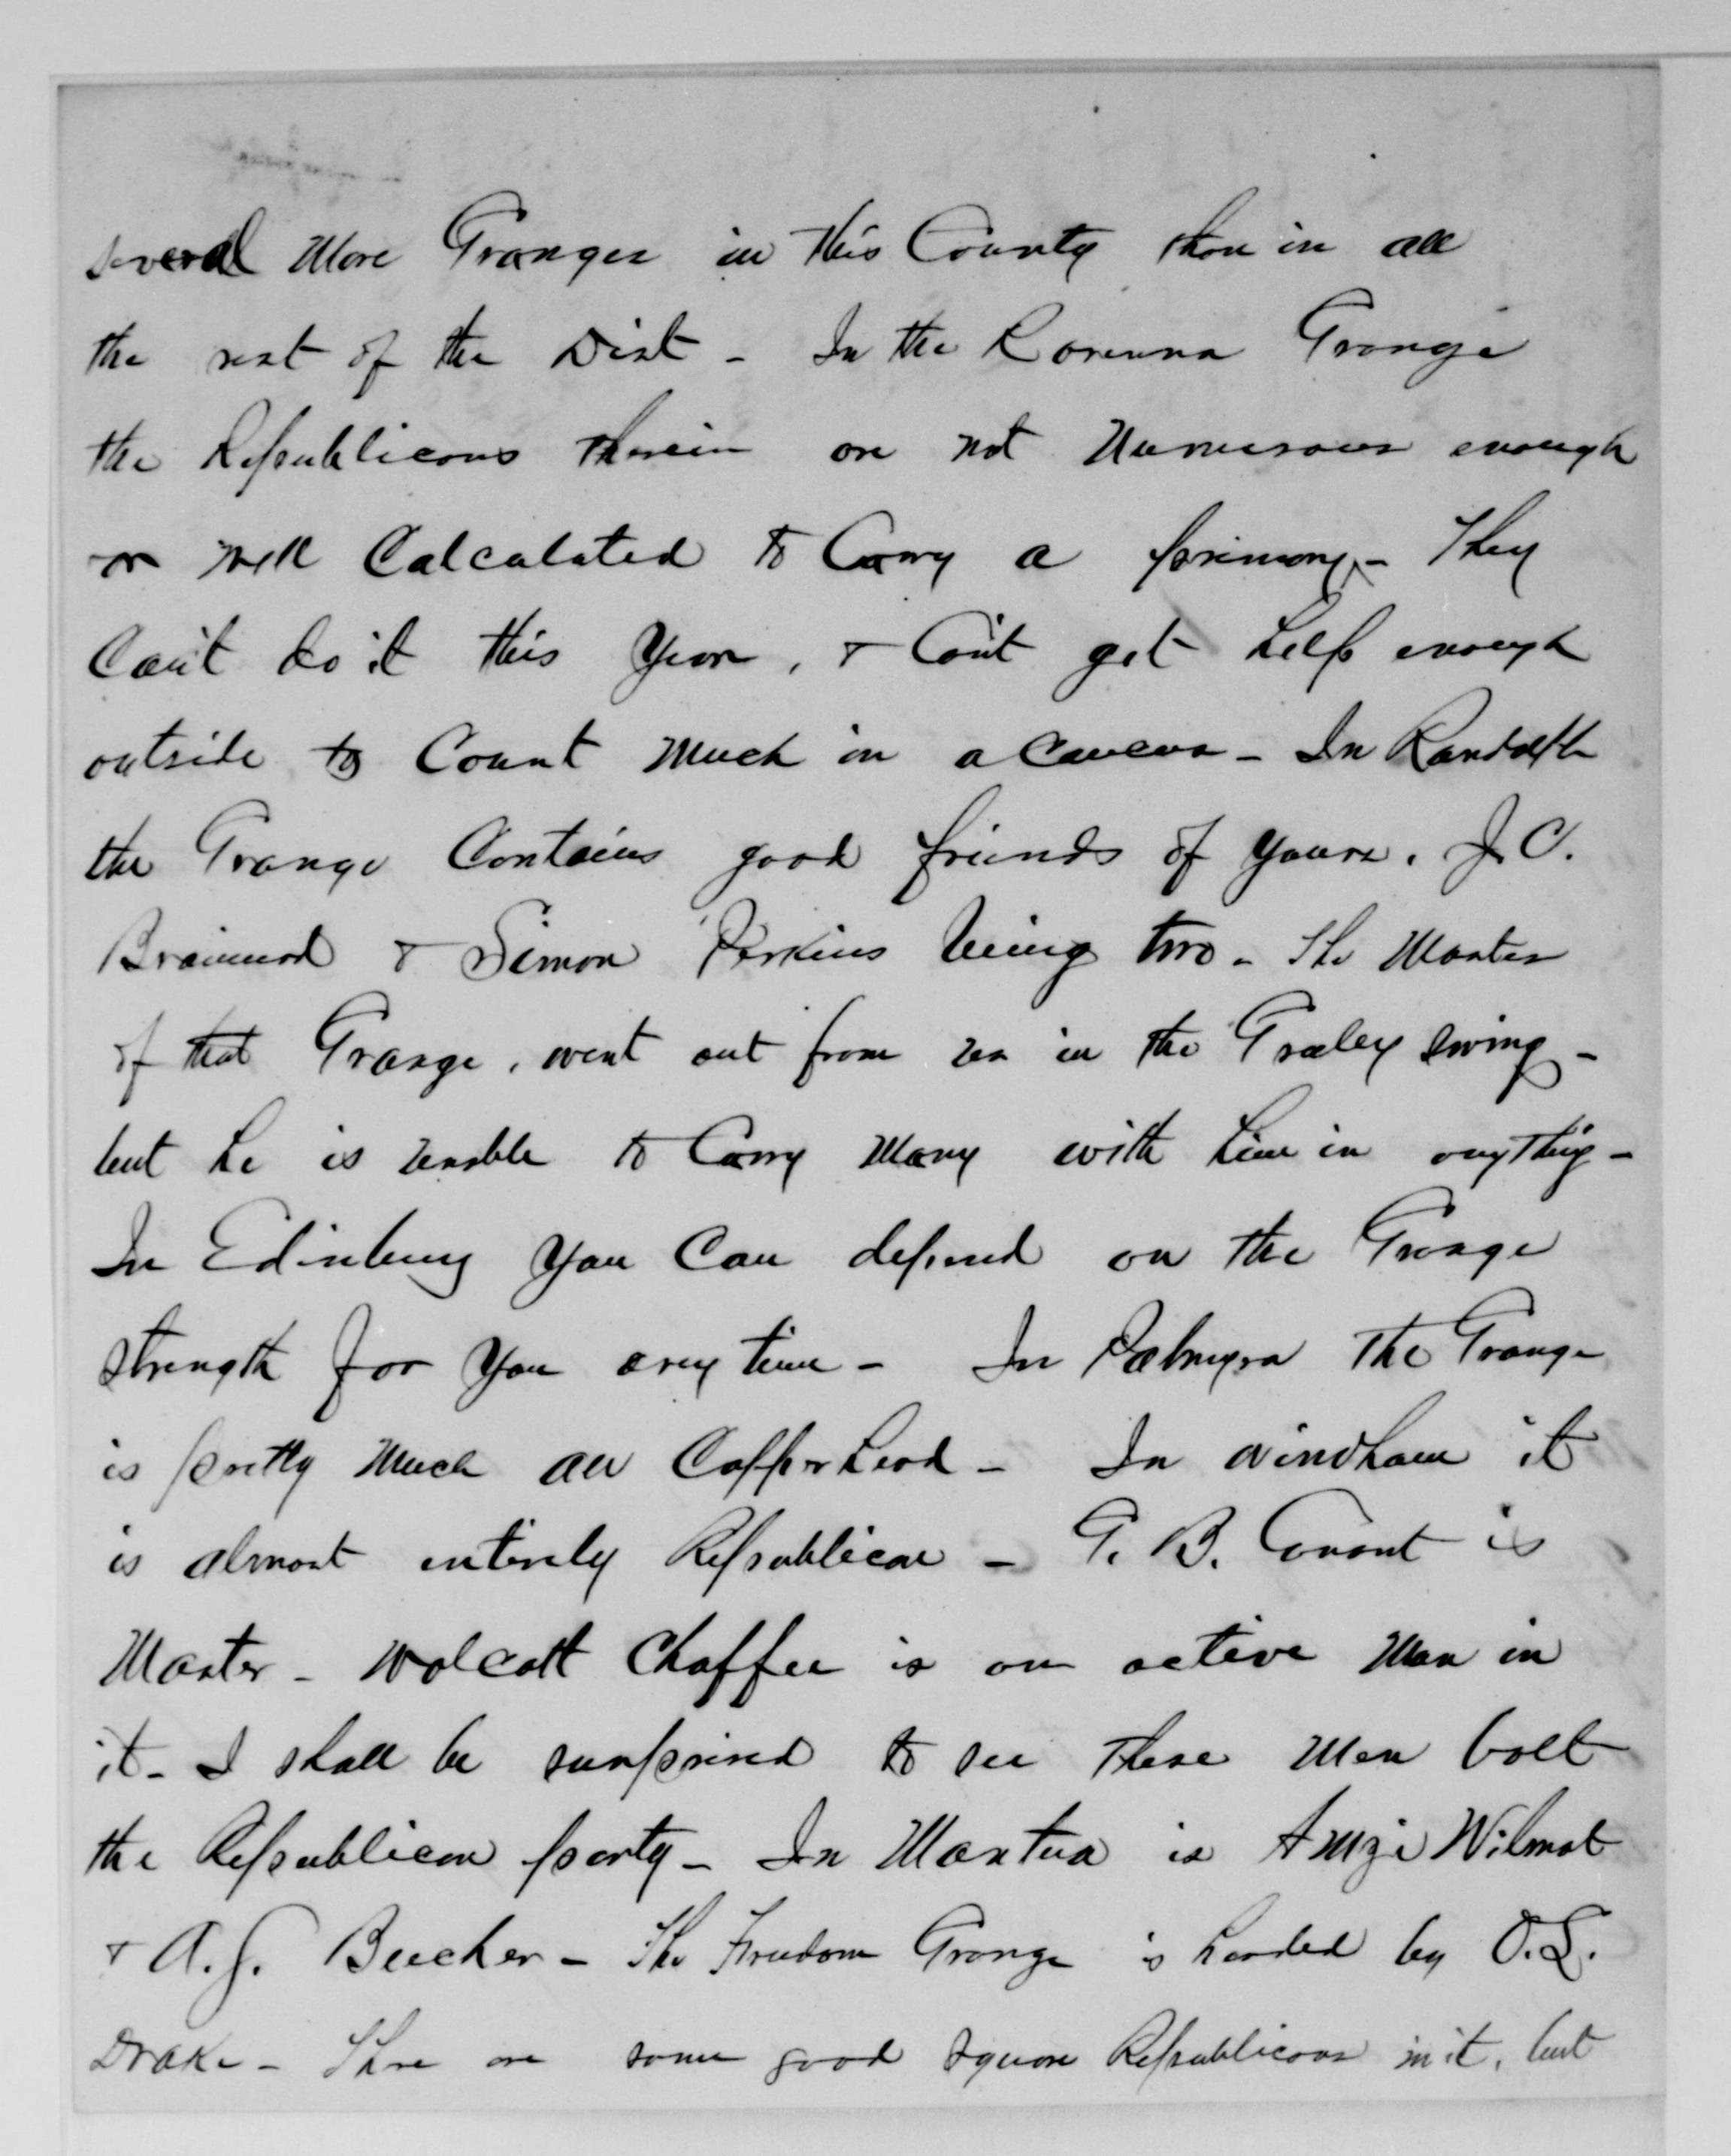 several more Granges in this County than in all
the rest of the Dist - In the Ravenna Grange
the Republicans therein are not numerous enough
or well Calculated to Carry a primary - They
Can't do it this year, & Can't get help enough
outside to Count much in a Caucus - In Randolph
the Grange Contains good friends of yours. J. C.
Brainerd & Simon Perkins being two - The Master
of that Grange, went out from us in the Greeley swing -
but he is unable to Carry many with him in anything -
In Edinburg you Can depend on the Grange
strength for you any time - In Palmyra the Grange
is pretty much all Copperhead - In Windham it
is almost entirely Republican - G. B. Conant is
Master - Wolcott Chaffee is an active man in
it - I shall be surprised to see these men bolt
the Republican party - In Mantua is Amzi Wilmot
& A. J. Beecher - The Freedom Grange is headed by O. L.
Drake - There are some good square Republicans in it, but